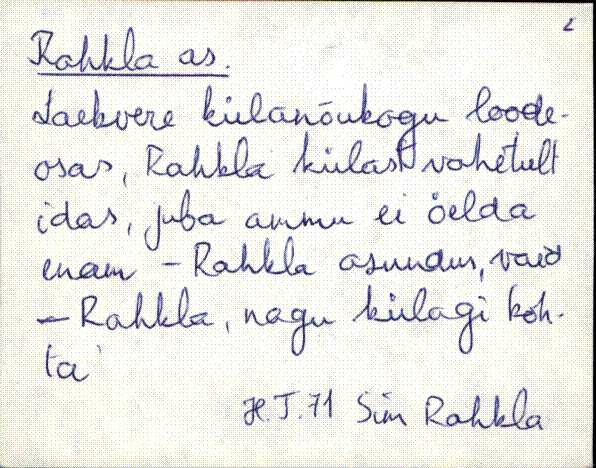 Rahkla as.
Laekvere külanõukogu loode-
osas, Rahkla külast vahetult
idas, juba ammu ei öelda
enam - Rahkla asundus, vaid
- Rahkla, nagu külagi koh-
ta
H.J.71 Sim Rahkla